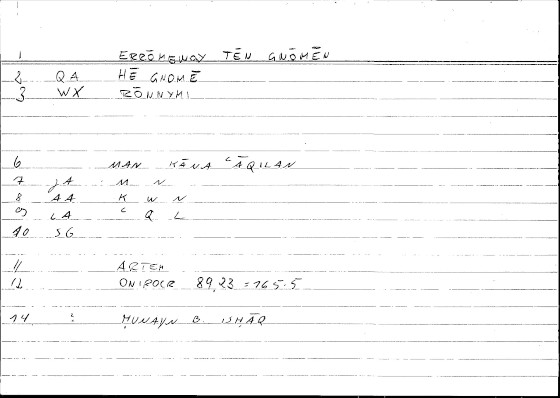 1 ERRŌMENOY TĒN GNŌMĒN
2 QA HĒ GNOMĒ
3 WX RŌNNYMI
6 MAN KĀNA ʿĀQILAN
7 JA M N
8 AA K W N
9 LA ʿ Q L
10 SG
11 ARTEM
12 ONIROCR 89,23 = 165.5
14 : ḤUNAYN B. ISḤĀQ